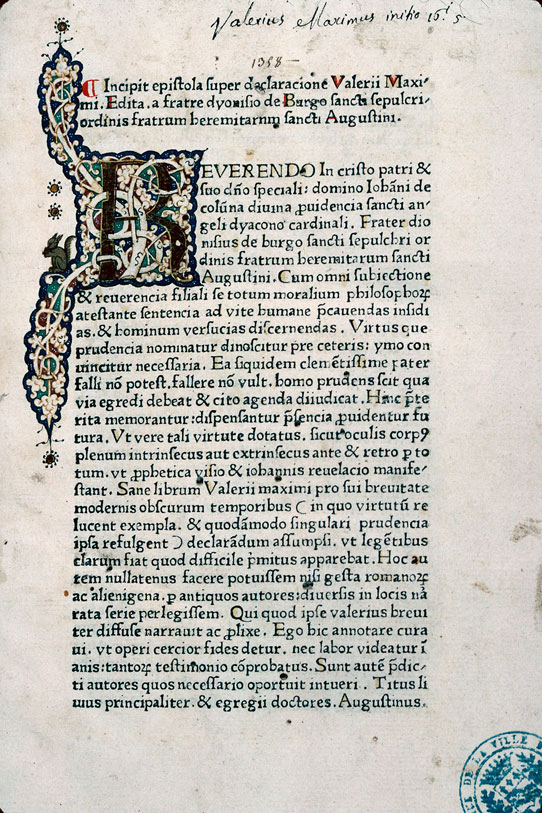 Valerius Maximus initio
1358 —
¶ Incipit epistola super declaracione Valerii Maxi-
mi. Edita. a fratre dyonisio de Burgo sancti sepulcri.
ordinis fratrum heremitarum sancti Augustini.
REVERENDO In cristo patri &
suo dño speciali: domino Iohãni de
colũna diuina ꝓuidencia sancti an-
geli dyacono cardinali. Frater dio
nisius de burgo sancti sepulchri or
dinis fratrum heremitarum sancti
Augustini. Cum omni subiectione
& reuerencia filiali se totum moralium philosophoꝝ
atestante sentencia ad vite humane p̃cauendas insidi
as. & hominum versucias discernendas. Virtus que
prudencia nominatur dinoscitur pre ceteris: ymo con
uincitur necessaria. Ea siquidem clemẽtissime pater
falli nõ potest. fallere nõ vult. homo prudens scit qua
via egredi debeat & cito agenda diiudicat. Hinc p̃te
rita memorantur: dispensantur p̃sencia ꝓuidentur fu
tura. Vt vere tali virtute dotatus. sicut oculis corpꝰ
plenum intrinsecus aut extrinsecus ante & retro ꝓ to
tum. vt ꝓphetica visio & iohannis reuelacio manife-
stant. Sane librum Valerii maximi pro sui breuitate
modernis obscurum temporibus ( in quo virtutũ re
lucent exempla. & quodãmodo singulari prudencia
ipsa refulgent ) declarãdum assumpsi. vt legẽtibus
clarum fiat quod difficile p̃mitus apparebat. Hoc au
tem nullatenus facere potuissem nisi gesta romanoꝝ
ac alienigena. ꝑ antiquos autores: diuersis in locis nã
rata serie perlegissem. Qui quod ipse valerius breui
ter diffuse narrauit ac ꝓlixe. Ego hic annotare cura
ui. vt operi cercior fides detur. nec labor videatur ĩ
anis: tantoꝝ testimonio cõprobatus. Sunt autẽ p̃dic-
ti autores quos necessario oportuit intueri. Titus li
uius principaliter. & egregii doctores. Augustinus.
DE LA VILLE